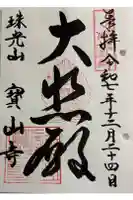 菩拝 令和七年十二月二十四日
大悲殿
珠光山 寳山寺